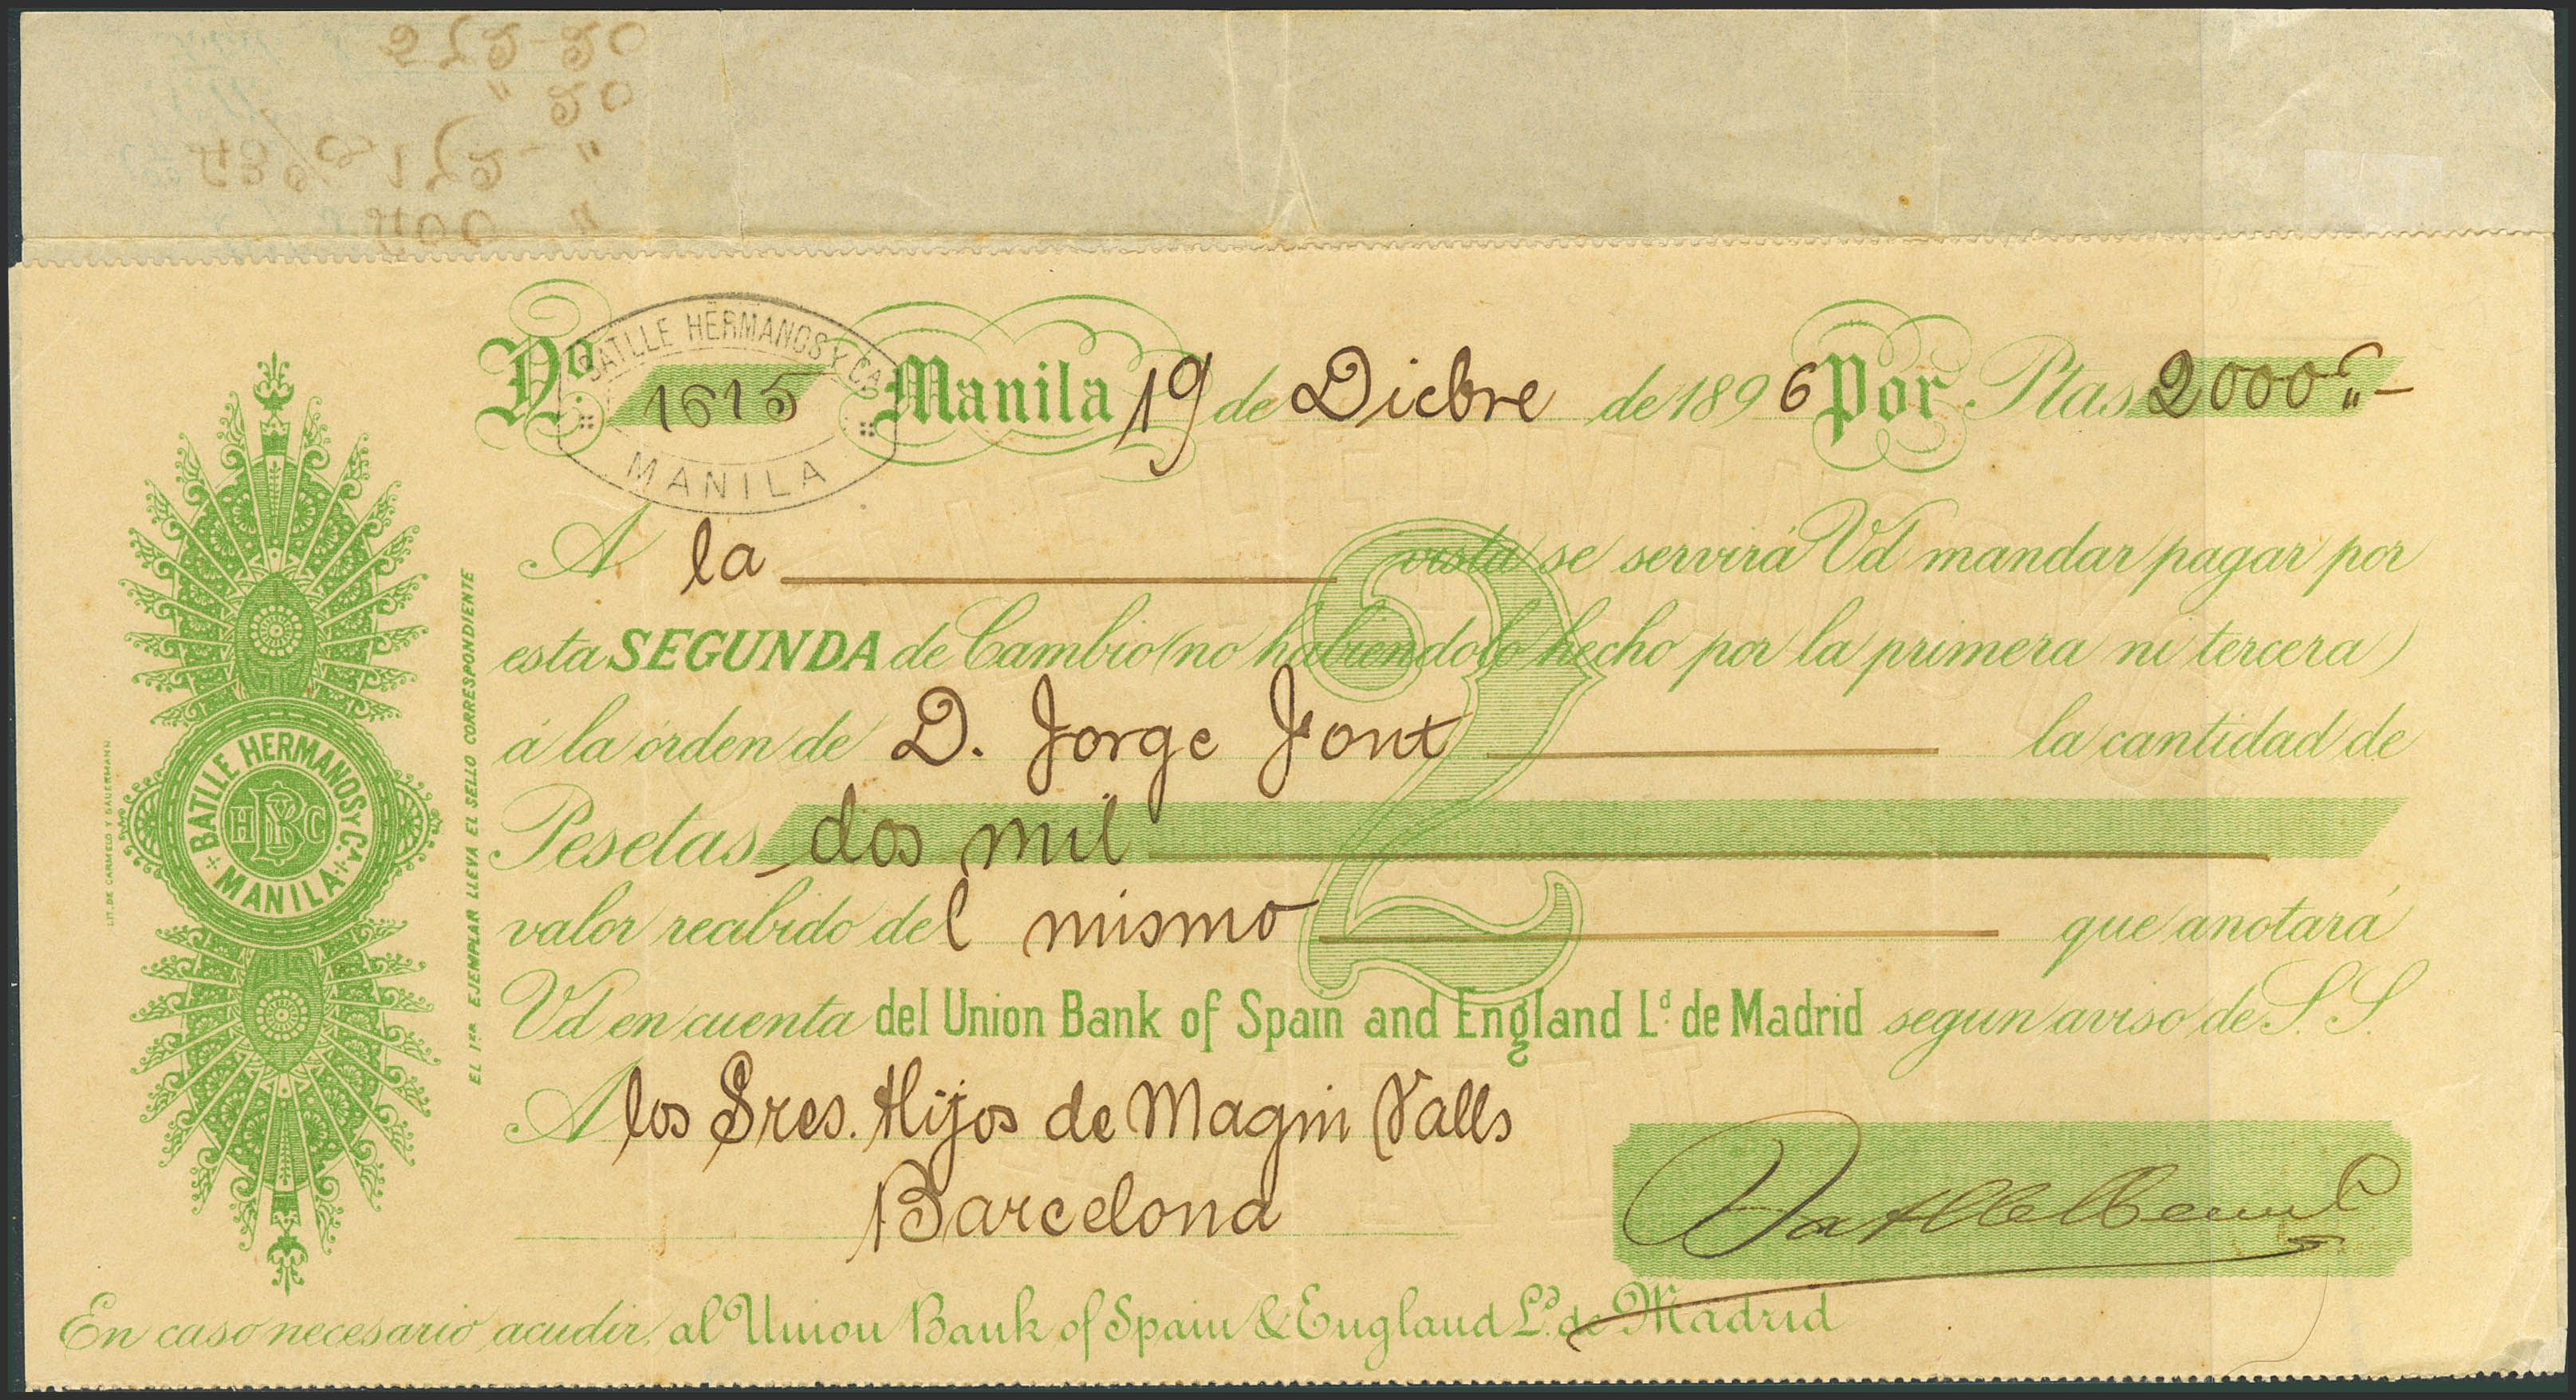 BATLLE HERMANOS Y CA
MANILA
No. 1615 Manila 19 de Dicbre de 1896 Por Ptas 2000 "-
A la vista se servirá Vd mandar pagar por
esta SEGUNDA de Cambio (no habiendolo hecho por la primera ni tercera)
á la órden de D. Jorge Font la cantidad de
Pesetas dos mil
valor recibido del mismo que anotará
Vd en cuenta del Union Bank of Spain and England Ld. de Madrid segun aviso de S. S.
A los Sres. Hijos de Magin Valls
Barcelona
En caso necesario acudir al Union Bank of Spain & England Ld. de Madrid
BATLLE HERMANOS Y CA.
HBYC
MANILA
EL 1ER EJEMPLAR LLEVA EL SELLO CORRESPONDIENTE
LIT. DE CARMELO Y BAUERMANN
2